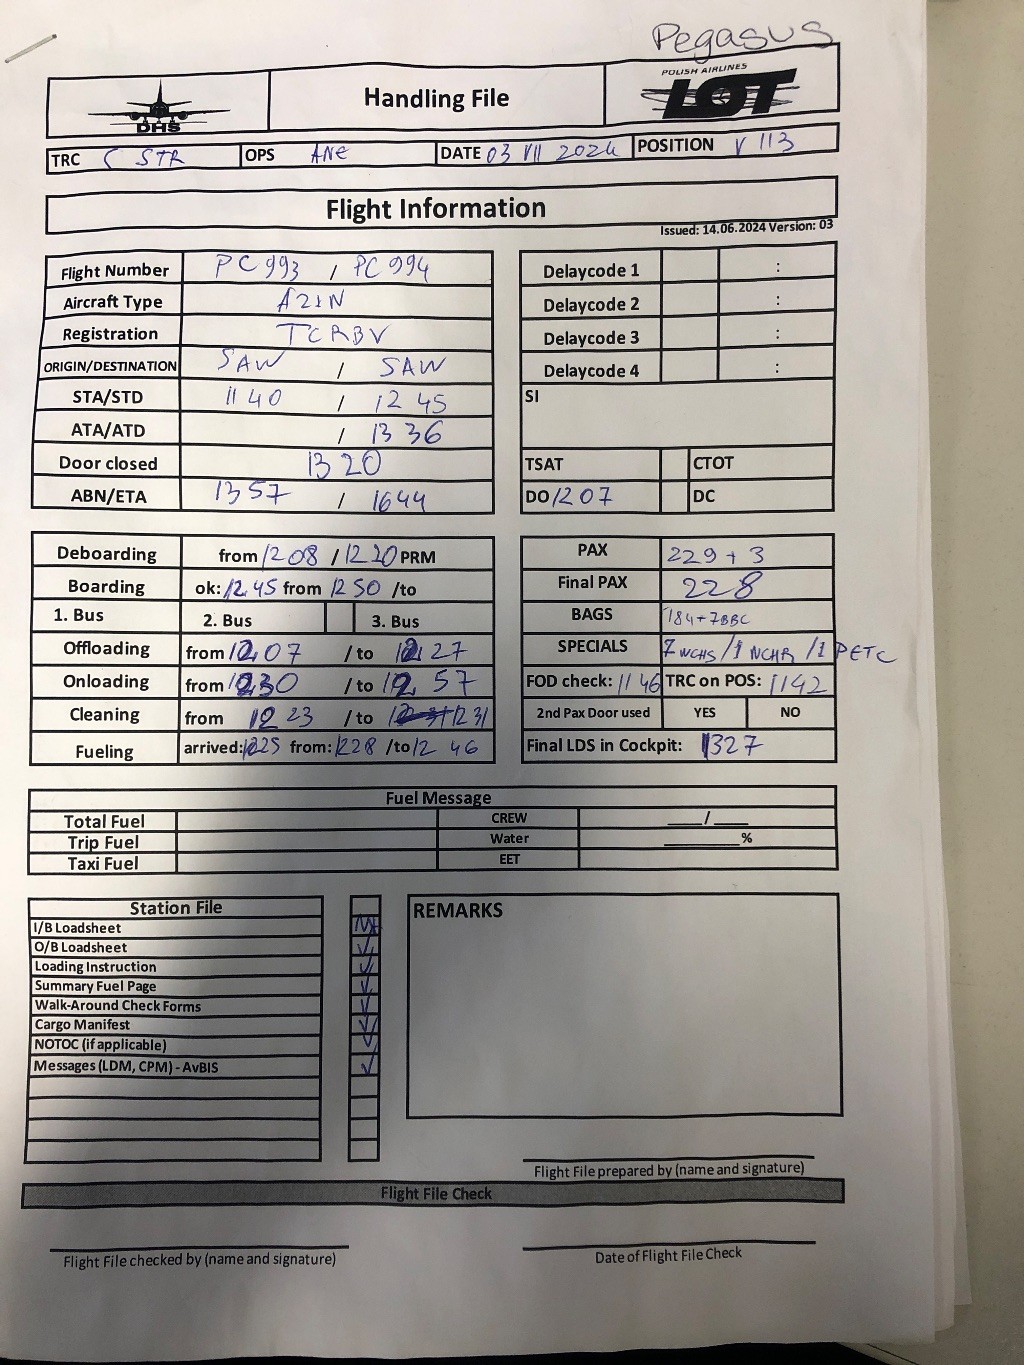 Pegasus
DHS
Handling File
POLISH AIRLINES
LOT
TRC C STR OPS ANE DATE 03 VII 2024 POSITION V 113
Flight Information
Issued: 14.06.2024 Version: 03
Flight Number PC 993 / PC 994
Aircraft Type A21N
Registration TCRBV
ORIGIN/DESTINATION SAW / SAW
STA/STD 11 40 / 12 45
ATA/ATD / 13 36
Door closed 13 20
ABN/ETA 13 57 / 16 44
Delaycode 1 :
Delaycode 2 :
Delaycode 3 :
Delaycode 4 :
SI
TSAT CTOT
DO 12 07 DC
Deboarding from 12 08 / 12 20 PRM
Boarding ok: 12 45 from 12 50 /to
1. Bus 2. Bus 3. Bus
Offloading from 12 07 / to 12 27
Onloading from 12 30 / to 12 57
Cleaning from 12 23 / to 12 31
Fueling arrived: 1225 from: 1228 /to 12 46
PAX 229 + 3
Final PAX 228
BAGS 184+7BBC
SPECIALS 7 WCHS / 1 WCHR / 1 PETC
FOD check: 11 46 TRC on POS: 1142
2nd Pax Door used YES NO
Final LDS in Cockpit: 1327
Fuel Message
Total Fuel CREW ___/___
Trip Fuel Water ______%
Taxi Fuel EET
Station File
I/B Loadsheet
O/B Loadsheet ✓
Loading Instruction ✓
Summary Fuel Page ✓
Walk-Around Check Forms ✓
Cargo Manifest ✓
NOTOC (if applicable) ✓
Messages (LDM, CPM) - AvBIS ✓
REMARKS
Flight File prepared by (name and signature)
Flight File Check
Flight File checked by (name and signature)
Date of Flight File Check